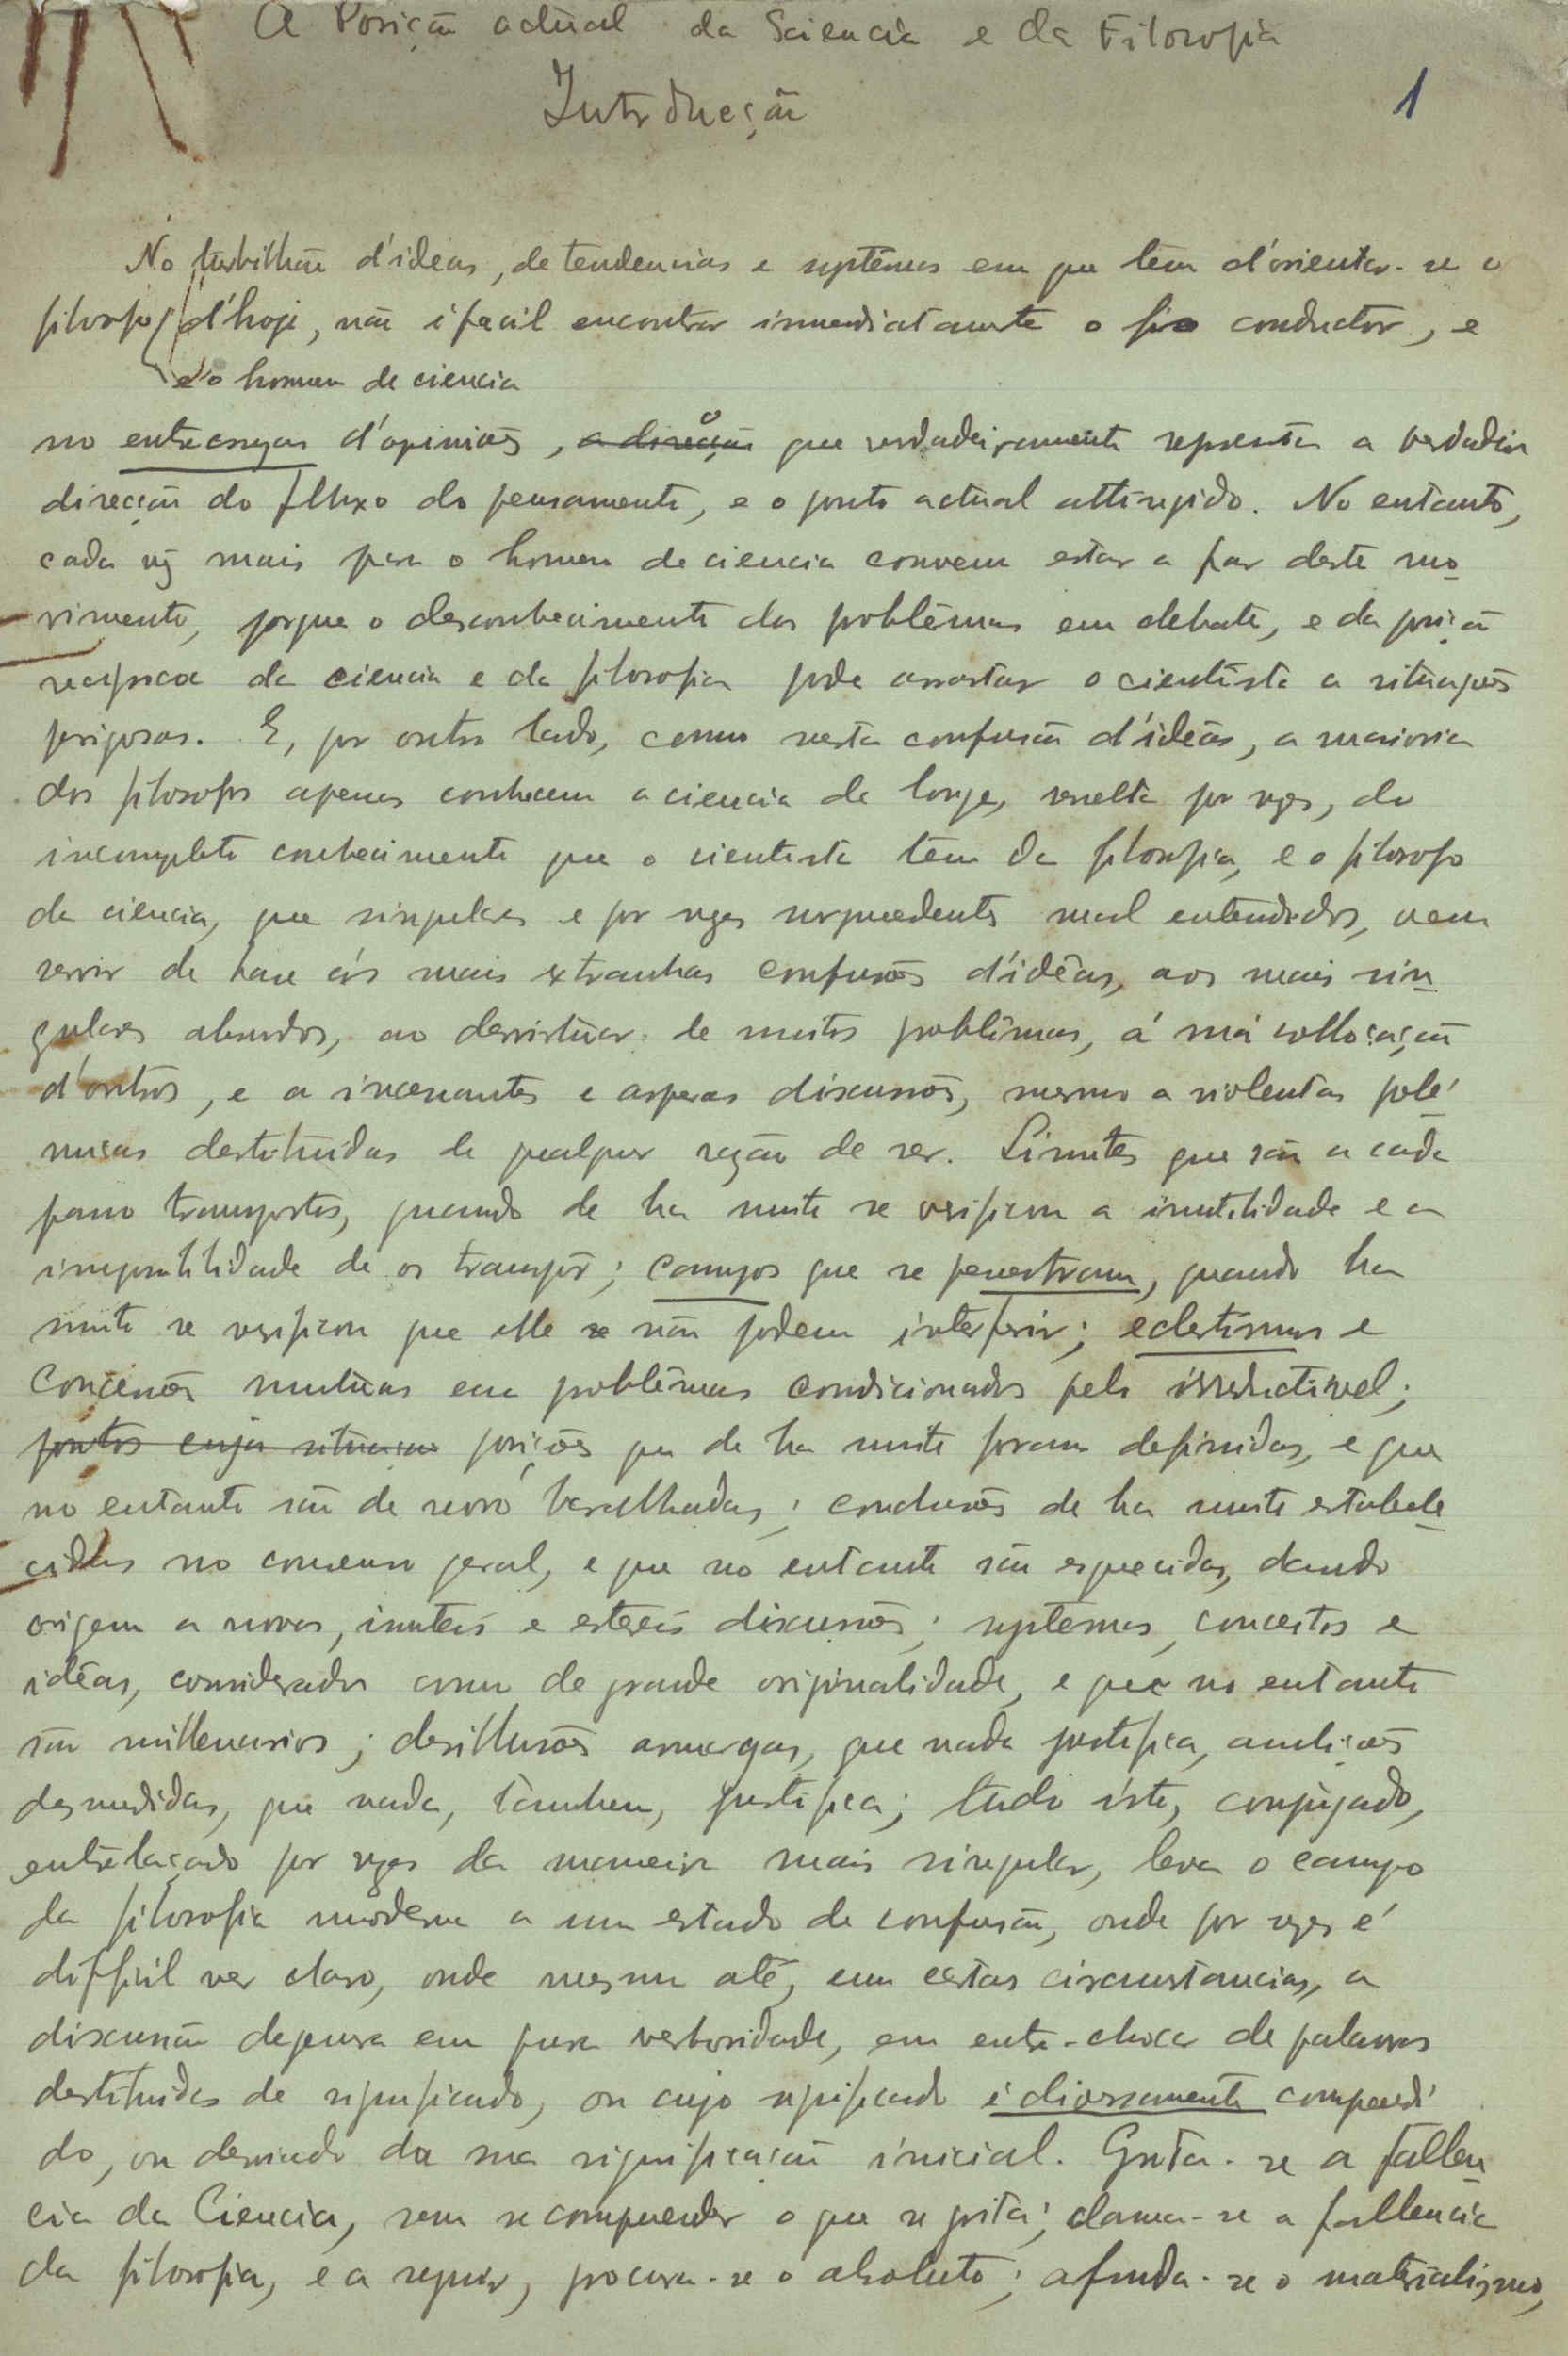 A Posição actual da Sciencia e da Filosofia
Introducção
1
No turbilhão d'ideas, de tendencias e systêmas em que têm d'orientar-se o
filosofo d'hoje, não é facil encontrar immediatamente o fio conductor, e
e o homem de ciencia
no entrecruzar d'opiniões, a direcção o que verdadeiramente representa a verdadeira
direcção do fluxo do pensamento, e o ponto actual attingido. No entanto,
cada vez mais para o homem de ciencia convem estar a par deste mo-
vimento, porque o desconhecimento dos problêmas em debate, e da posição
reciproca da ciencia e da filosofia pode arrastar o cientista a situações
perigosas. E, por outro lado, como nesta confusão d'idêas, a maioria
dos filosofos apenas conhecem a ciencia de longe, resulta por vezes, do
incompleto conhecimento que o cientista têm da filosofia, e o filosofo
da ciencia, que singulares e por vezes surpreendentes mal entendidos, vem
servir de base ás mais extranhas confusões d'idêas, aos mais sin-
gulares absurdos, ao desvirtuar de muitos problêmas, á má collocação
d'outros, e a incessantes e asperas discussões, mesmo a violentas polé-
micas destituidas de qualquer razão de ser. Limites que são a cada
passo transpostos, quando de ha muito se verificou a inutilidade e a
impossibilidade de os transpôr; campos que se penetram, quando ha
muito se verificou que elle se não podem interferir; eclectismos e
concessões mutuas em problêmas condicionados pelo irreductivel;
pontos cuja situação posições que de ha muito foram definidas, e que
no entanto são de novo baralhadas; conclusões de ha muito estabele-
cidas no consenso geral, e que no entanto são esquecidas, dando
origem a novas, inuteis e estereis discussões; systemas, conceitos e
idêas, considerados como de grande originalidade, e que no entanto
são millenarios; desillusões amargas, que nada justifica, ambições
desmedidas, que nada, tambem, justifica; tudo isto, conjugado,
entrelaçado por vezes da maneira mais singular, leva o campo
da filosofia moderna a um estado de confusão, onde por vezes é
difficil ver claro, onde mesmo até, em certas circumstancias, a
discussão degenera em pura verbosidade, em entre-choca de palavras
destituidas de significado, ou cujo significado é diversamente compreendi
do, ou desviado da sua significação inicial. Grita-se a fallen-
cia da Ciencia, sem se compreender o que se grita; clama-se a fallencia
da filosofia, e a seguir, procura-se o absoluto; afunda-se o materialismo,